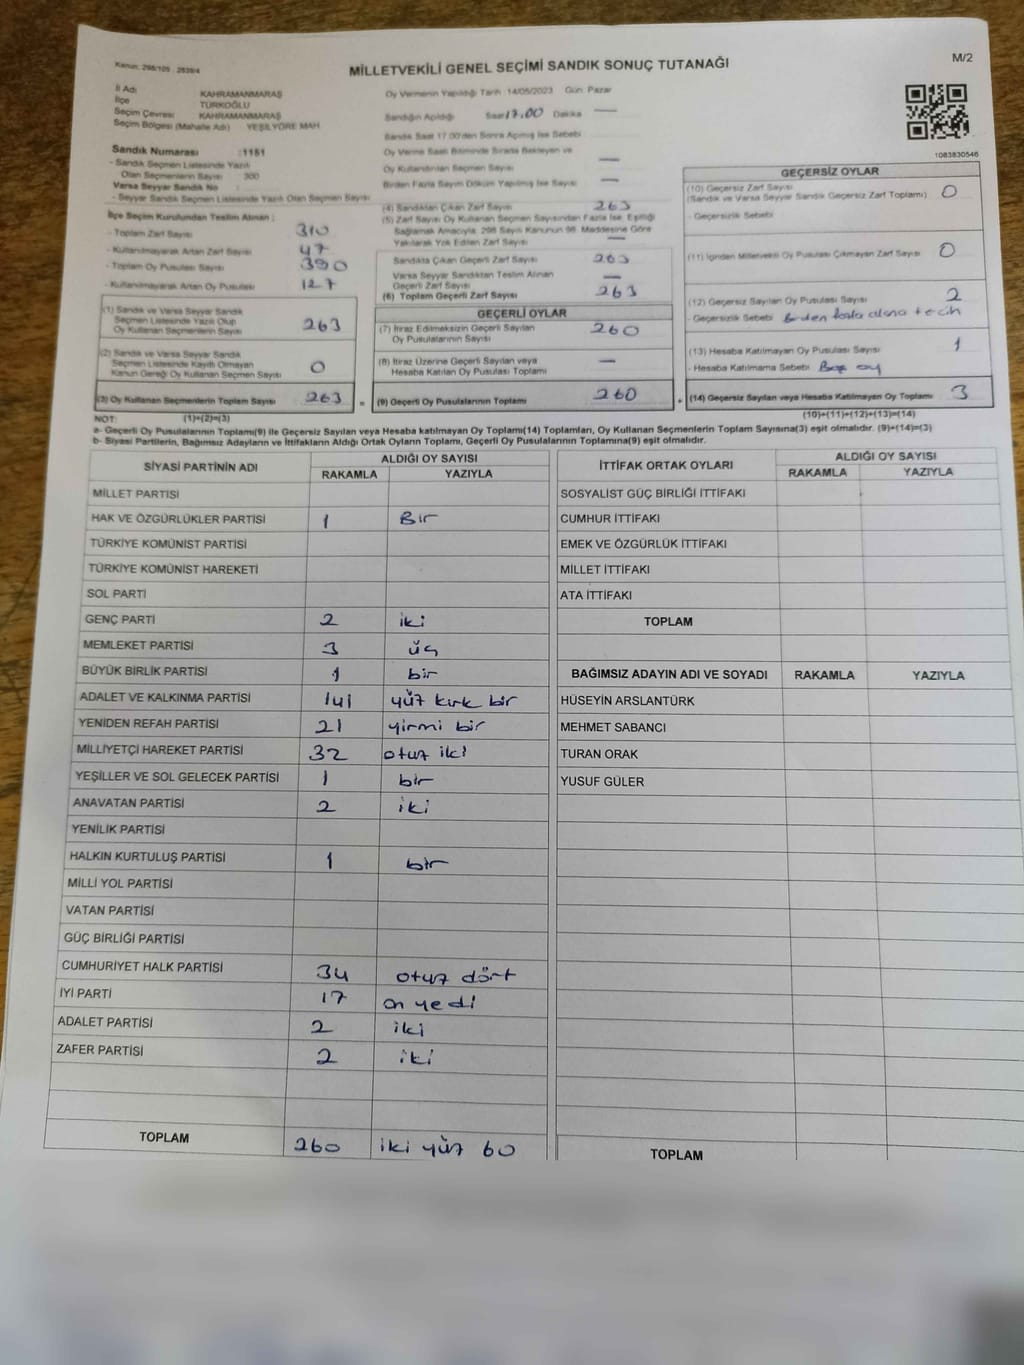 Kanun: 298/105 - 2839/4
MİLLETVEKİLİ GENEL SEÇİMİ SANDIK SONUÇ TUTANAĞI
M/2
İl Adı KAHRAMANMARAŞ
İlçe TÜRKOĞLU
Seçim Çevresi KAHRAMANMARAŞ
Seçim Bölgesi (Mahalle Adı) YEŞİLYÖRE MAH
Oy Vermenin Yapıldığı Tarih :14/05/2023 Gün: Pazar
Sandığın Açıldığı Saat 17.00 Dakika —
Sandık Saat 17.00'den Sonra Açılmış İse Sebebi
Oy Verme Saati Bitiminde Sırada Bekleyen ve
Oy Kullandırılan Seçmen Sayısı —
Birden Fazla Sayım Döküm Yapılmış İse Sayısı —
1083830546
Sandık Numarası :1151
- Sandık Seçmen Listesinde Yazılı
Olan Seçmenlerin Sayısı 300
Varsa Seyyar Sandık No
- Seyyar Sandık Seçmen Listesinde Yazılı Olan Seçmen Sayısı
İlçe Seçim Kurulundan Teslim Alınan :
- Toplam Zarf Sayısı 310
- Kullanılmayarak Artan Zarf Sayısı 47
- Toplam Oy Pusulası Sayısı 390
- Kullanılmayarak Artan Oy Pusulası 127
(1) Sandık ve Varsa Seyyar Sandık
Seçmen Listesinde Yazılı Olup
Oy Kullanan Seçmenlerin Sayısı 263
(2) Sandık ve Varsa Seyyar Sandık
Seçmen Listesinde Kayıtlı Olmayan
Kanun Gereği Oy Kullanan Seçmen Sayısı 0
(3) Oy Kullanan Seçmenlerin Toplam Sayısı 263 =
(4) Sandıktan Çıkan Zarf Sayısı 263
(5) Zarf Sayısı Oy Kullanan Seçmen Sayısından Fazla İse, Eşitliği
Sağlamak Amacıyla, 298 Sayılı Kanunun 98. Maddesine Göre
Yakılarak Yok Edilen Zarf Sayısı —
Sandıkta Çıkan Geçerli Zarf Sayısı 263
Varsa Seyyar Sandıktan Teslim Alınan
Geçerli Zarf Sayısı —
(6) Toplam Geçerli Zarf Sayısı 263
GEÇERLİ OYLAR
(7) İtiraz Edilmeksizin Geçerli Sayılan
Oy Pusulalarının Sayısı 260
(8) İtiraz Üzerine Geçerli Sayılan veya
Hesaba Katılan Oy Pusulası Toplamı —
(9) Geçerli Oy Pusulalarının Toplamı 260 +
GEÇERSİZ OYLAR
(10) Geçersiz Zarf Sayısı
(Sandık ve Varsa Seyyar Sandık Geçersiz Zarf Toplamı) 0
- Geçersizlik Sebebi
(11) İçinden Milletvekili Oy Pusulası Çıkmayan Zarf Sayısı 0
(12) Geçersiz Sayılan Oy Pusulası Sayısı 2
- Geçersizlik Sebebi Birden fazla alana tecih
(13) Hesaba Katılmayan Oy Pusulası Sayısı 1
- Hesaba Katılmama Sebebi Boş oy
(14) Geçersiz Sayılan veya Hesaba Katılmayan Oy Toplamı 3
NOT: (1)+(2)=(3)
(10)+(11)+(12)+(13)=(14)
a- Geçerli Oy Pusulalarının Toplamı(9) ile Geçersiz Sayılan veya Hesaba katılmayan Oy Toplam(14) Toplamları, Oy Kullanan Seçmenlerin Toplam Sayısına(3) eşit olmalıdır. (9)+(14)=(3)
b- Siyasi Partilerin, Bağımsız Adayların ve İttifakların Aldığı Ortak Oyların Toplamı, Geçerli Oy Pusulalarının Toplamına(9) eşit olmalıdır.
SİYASİ PARTİNİN ADI ALDIĞI OY SAYISI
RAKAMLA YAZIYLA
MİLLET PARTİSİ
HAK VE ÖZGÜRLÜKLER PARTİSİ 1 Bir
TÜRKİYE KOMÜNİST PARTİSİ
TÜRKİYE KOMÜNİST HAREKETİ
SOL PARTİ
GENÇ PARTİ 2 iki
MEMLEKET PARTİSİ 3 üç
BÜYÜK BİRLİK PARTİSİ 1 bir
ADALET VE KALKINMA PARTİSİ 141 yüz kırk bir
YENİDEN REFAH PARTİSİ 21 yirmi bir
MİLLİYETÇİ HAREKET PARTİSİ 32 otuz iki
YEŞİLLER VE SOL GELECEK PARTİSİ 1 bir
ANAVATAN PARTİSİ 2 iki
YENİLİK PARTİSİ
HALKIN KURTULUŞ PARTİSİ 1 bir
MİLLİ YOL PARTİSİ
VATAN PARTİSİ
GÜÇ BİRLİĞİ PARTİSİ
CUMHURİYET HALK PARTİSİ 34 otuz dört
İYİ PARTİ 17 on yedi
ADALET PARTİSİ 2 iki
ZAFER PARTİSİ 2 iki
TOPLAM 260 iki yüz 60
İTTİFAK ORTAK OYLARI ALDIĞI OY SAYISI
RAKAMLA YAZIYLA
SOSYALİST GÜÇ BİRLİĞİ İTTİFAKI
CUMHUR İTTİFAKI
EMEK VE ÖZGÜRLÜK İTTİFAKI
MİLLET İTTİFAKI
ATA İTTİFAKI
TOPLAM
BAĞIMSIZ ADAYIN ADI VE SOYADI RAKAMLA YAZIYLA
HÜSEYİN ARSLANTÜRK
MEHMET SABANCI
TURAN ORAK
YUSUF GÜLER
TOPLAM